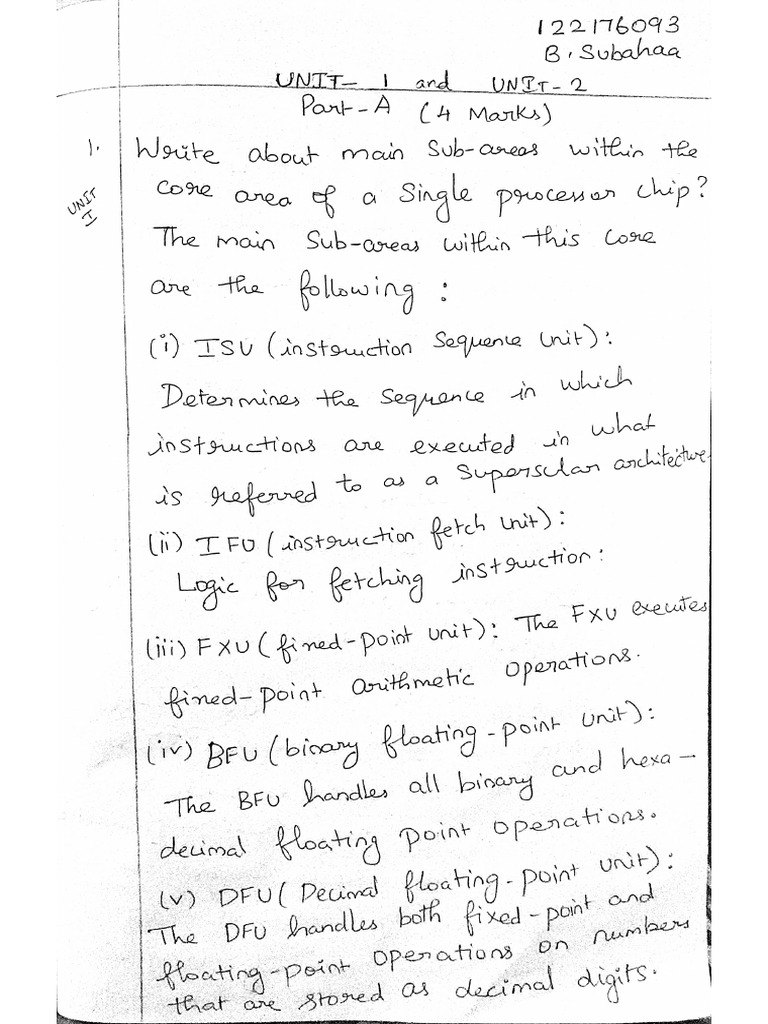 122176093
B. Subahaa
UNIT- 1 and UNIT-2
Part-A (4 Marks)
1. Write about main Sub-areas within the
UNIT I
core area of a Single processor chip?
The main Sub-areas within this core
are the following :
(i) ISU (instruction Sequence Unit):
Determines the Sequence in which
instructions are executed in what
is referred to as a Superscular architecture.
(ii) IFU (instruction fetch Unit):
Logic for fetching instruction:
(iii) FXU (fined-point unit): The FXU executes
fined-point arithmetic operations.
(iv) BFU (binary floating-point unit):
The BFU handles all binary and hexa-
decimal floating point operations.
(v) DFU (Decimal floating-point unit):
The DFU handles both fixed-point and
floating-point operations on numbers
that are stored as decimal digits.